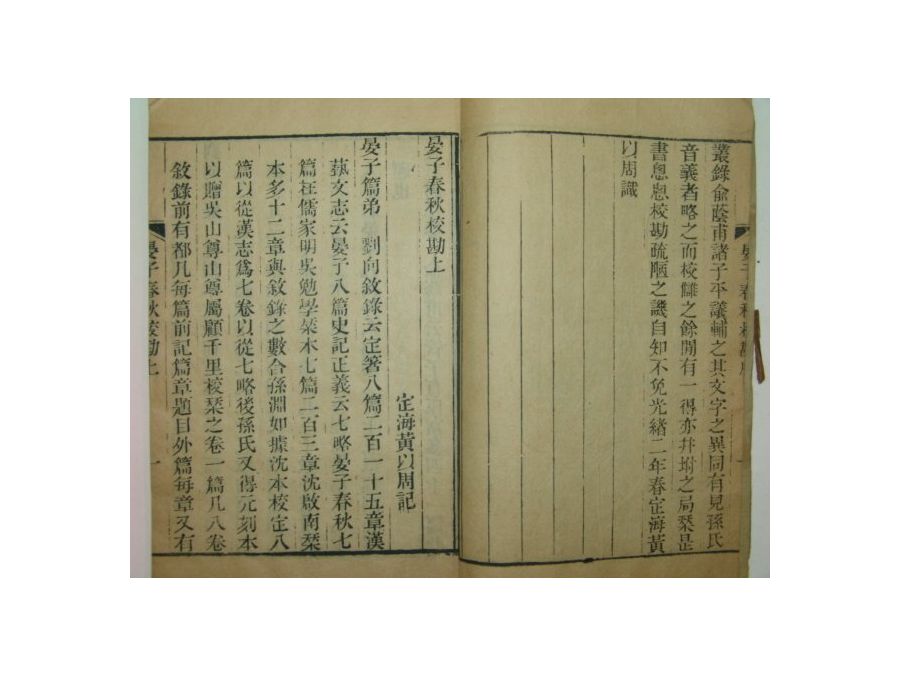 叢錄俞蔭甫諸子平議輔之其文字之異同有見孫氏
音義者略之而校讎之餘閒有一得亦幷坿之局栞是
書悤悤校勘疏陋之譏自知不免光緒二年春定海黃
以周識
晏子春秋校勘上
定海黃以周記
晏子篇弟　劉向敘錄云定箸八篇二百一十五章漢
蓺文志云晏子八篇史記正義云七略晏子春秋七
篇在儒家明吳勉學栞本七篇二百三章沈啟南栞
本多十二章與敘錄之數合孫淵如據沈本校定八
篇以從漢志爲七卷以從七略後孫氏又得元刻本
以贈吳山尊山尊屬顧千里校栞之卷一篇凡八卷
敘錄前有都凡每篇前記篇章題目外篇每章又有
晏子春秋校勘上
一